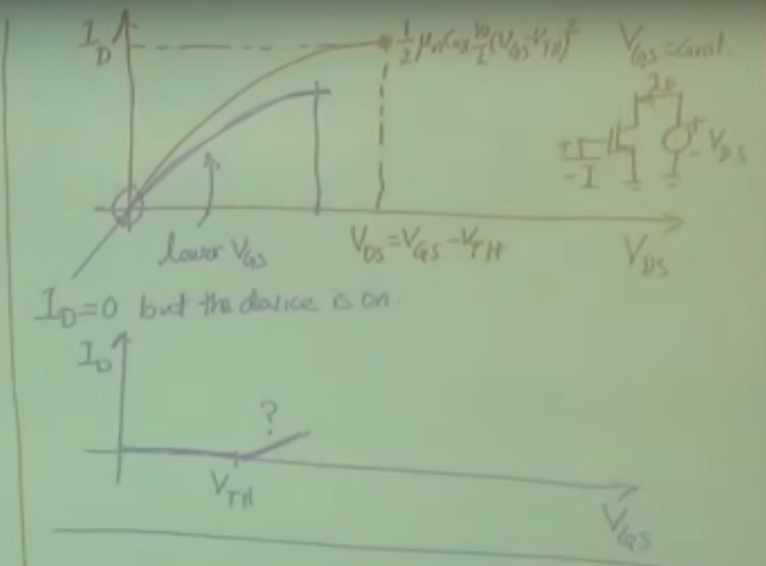 I_D
1/2 μ_n C_ox W/L (V_GS-V_TH)^2
V_GS=Const
I_D
+
-
+
-
V_DS
lower V_GS
V_DS=V_GS-V_TH
V_DS
I_D=0 but the device is on
I_D
?
V_TH
V_GS